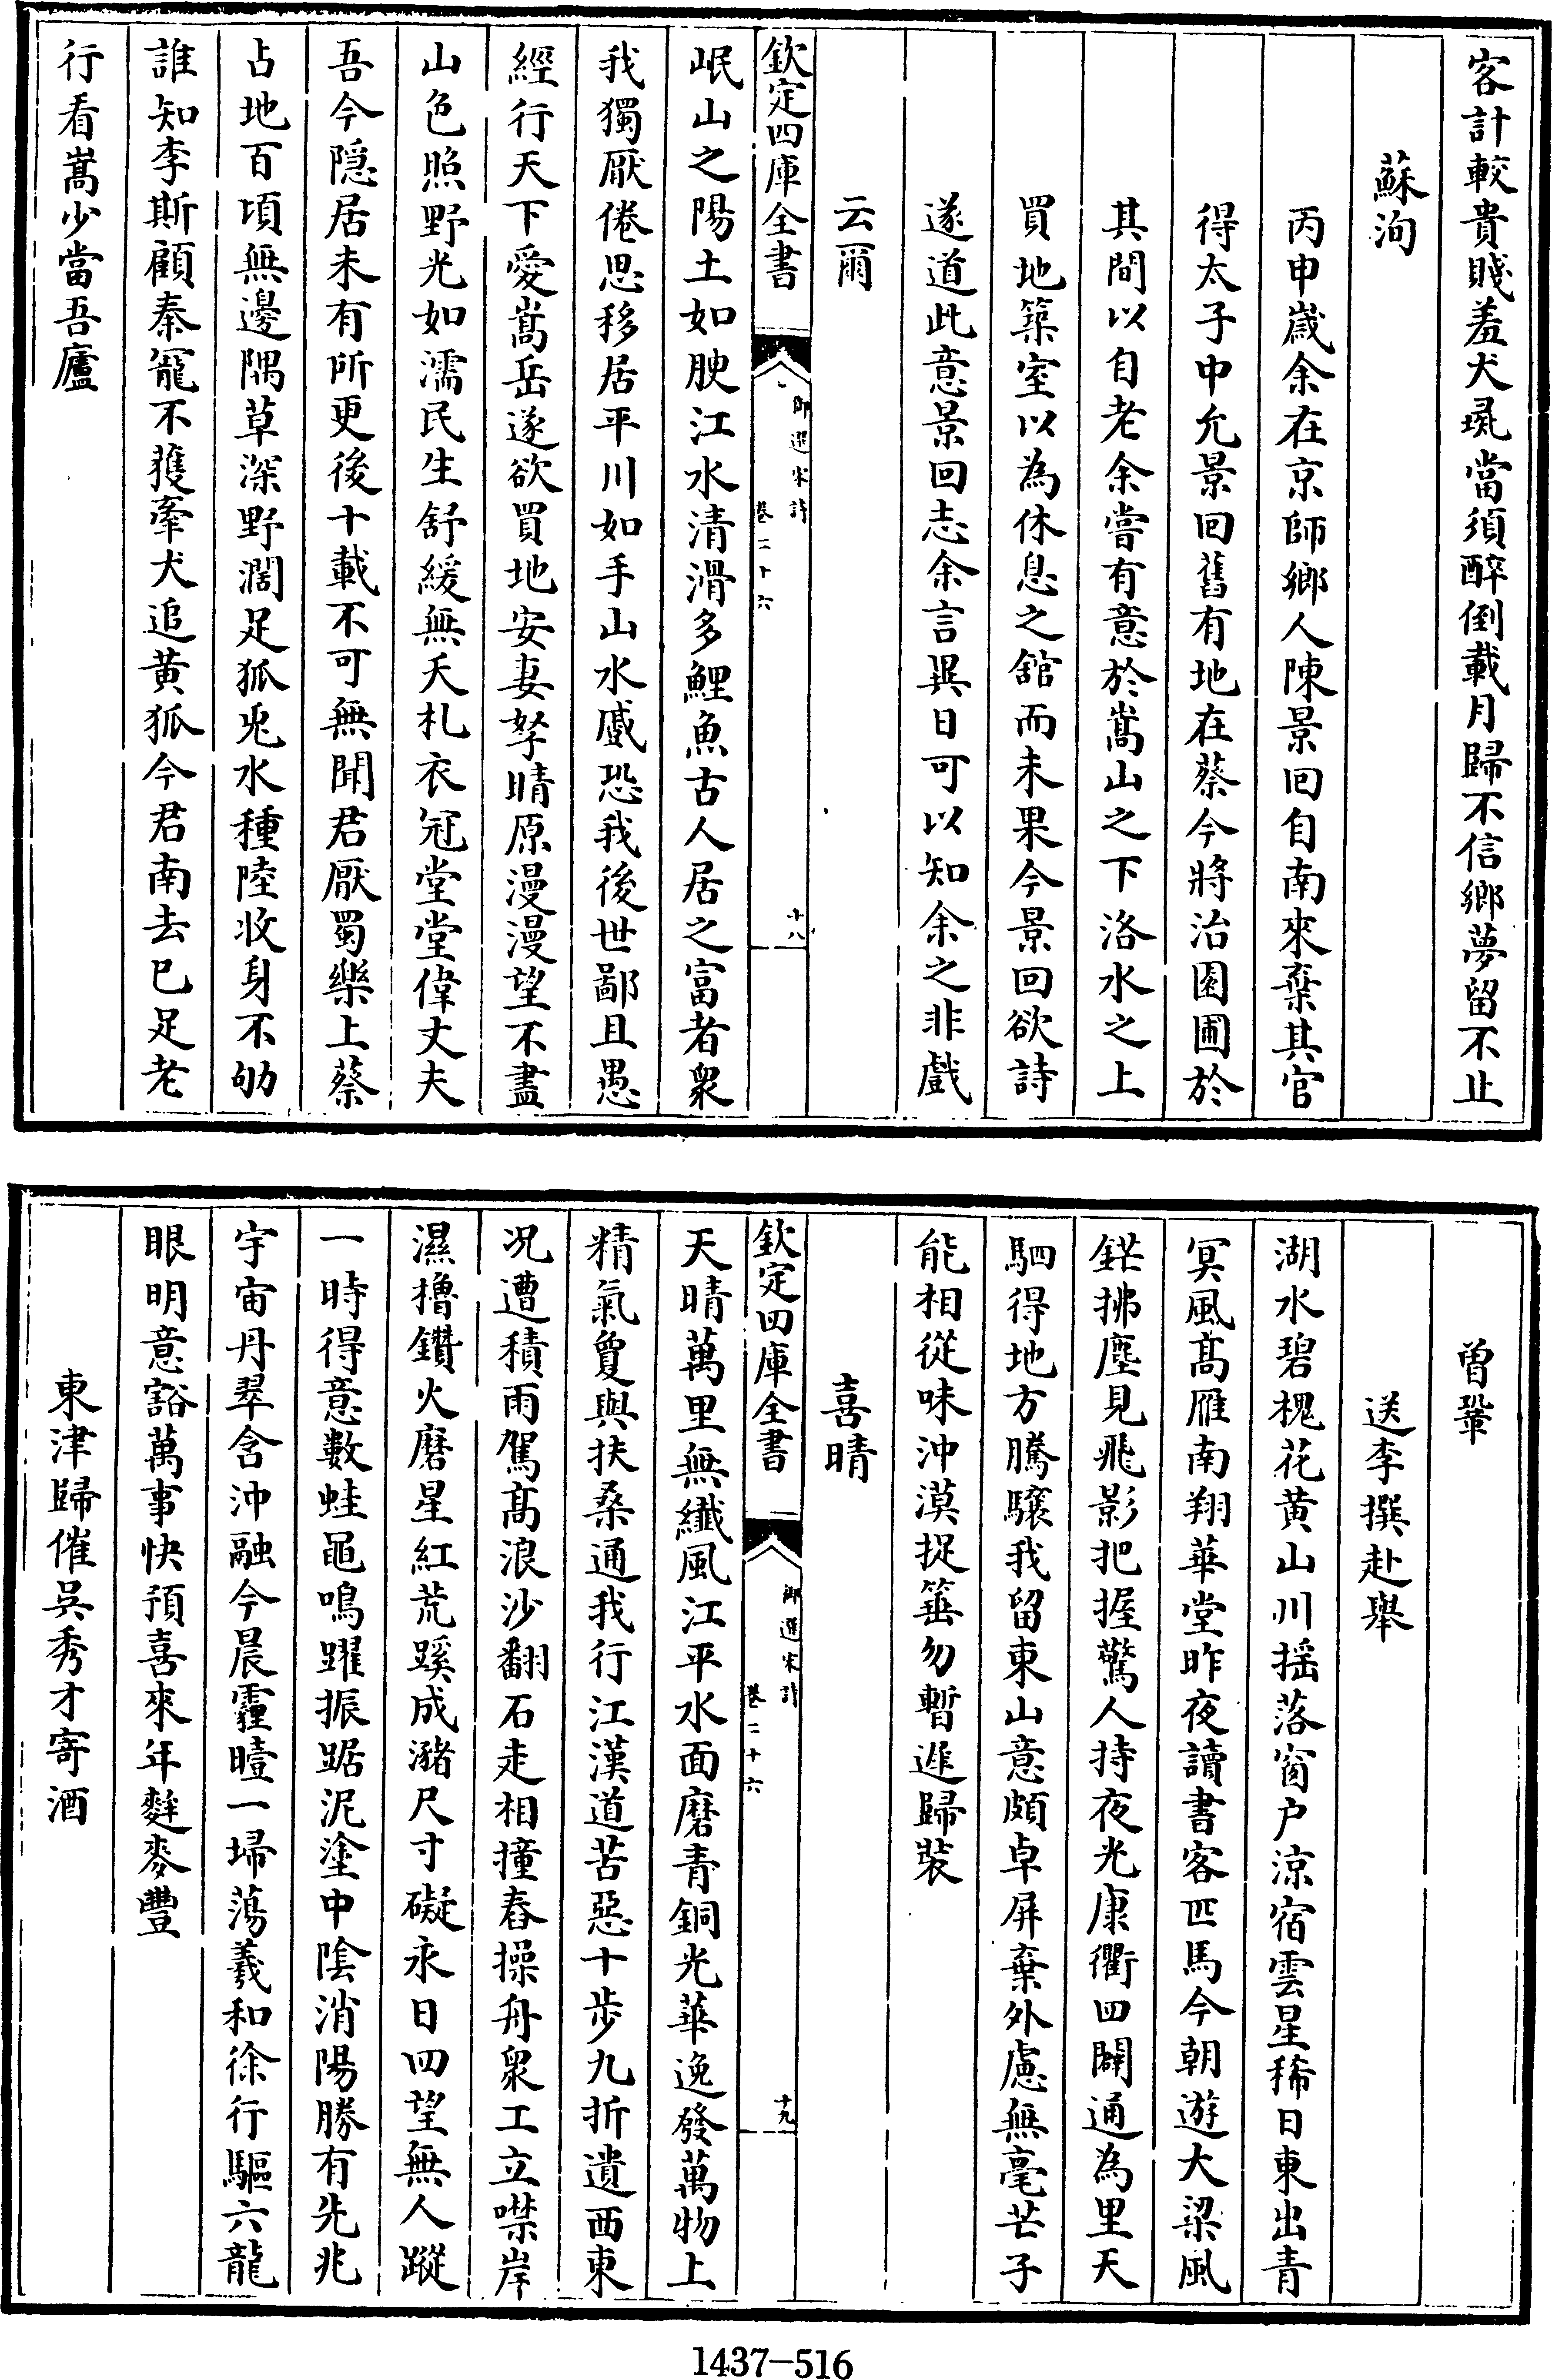 客計較貴賤羞犬彘當須醉倒載月歸不信鄉夢留不止
蘇洵
丙申歲余在京師鄉人陳景回自南來棄其官
得太子中允景回舊有地在蔡今將治園圃於
其間以自老余嘗有意於嵩山之下洛水之上
買地築室以為休息之館而未果今景回欲詩
遂道此意景回志余言異日可以知余之非戲
云爾
欽定四庫全書
御選宋詩
卷二十六
十八
岷山之陽土如腴江水清滑多鯉魚古人居之富者衆
我獨厭倦思移居平川如手山水蹙恐我後世鄙且愚
經行天下愛嵩岳遂欲買地安妻孥晴原漫漫望不盡
山色照野光如濡民生舒緩無夭札衣冠堂堂偉丈夫
吾今隱居未有所更後十載不可無聞君厭蜀樂上蔡
占地百頃無邊隅草深野濶足狐兎水種陸收身不劬
誰知李斯顧秦寵不獲牽犬追黃狐今君南去已足老
行看嵩少當吾廬
曽鞏
送李撰赴舉
湖水碧槐花黃山川揺落窗户涼宿雲星稀日東出青
冥風髙雁南翔華堂昨夜讀書客匹馬今朝遊大梁風
鋩拂塵見飛影把握驚人持夜光康衢四闢通為里天
駟得地方騰驤我留東山意頗卓屏棄外慮無毫芒子
能相從味沖漠捉箠勿暫遲歸裝
喜晴
欽定四庫全書
御選宋詩
卷二十六
十九
天晴萬里無纎風江平水面磨青銅光華逸發萬物上
精氣夐與扶桑通我行江漢道苦惡十歩九折遺西東
况遭積雨駕髙浪沙翻石走相撞舂操舟衆工立噤岸
濕櫓鑽火磨星紅荒蹊成瀦尺寸礙永日四望無人蹤
一時得意數蛙黽鳴躍振踞泥塗中陰消陽勝有先兆
宇宙丹翠含沖融今晨霾曀一埽蕩羲和徐行驅六龍
眼明意豁萬事快預喜來年麰麥豐
東津歸催吳秀才寄酒
1437-516